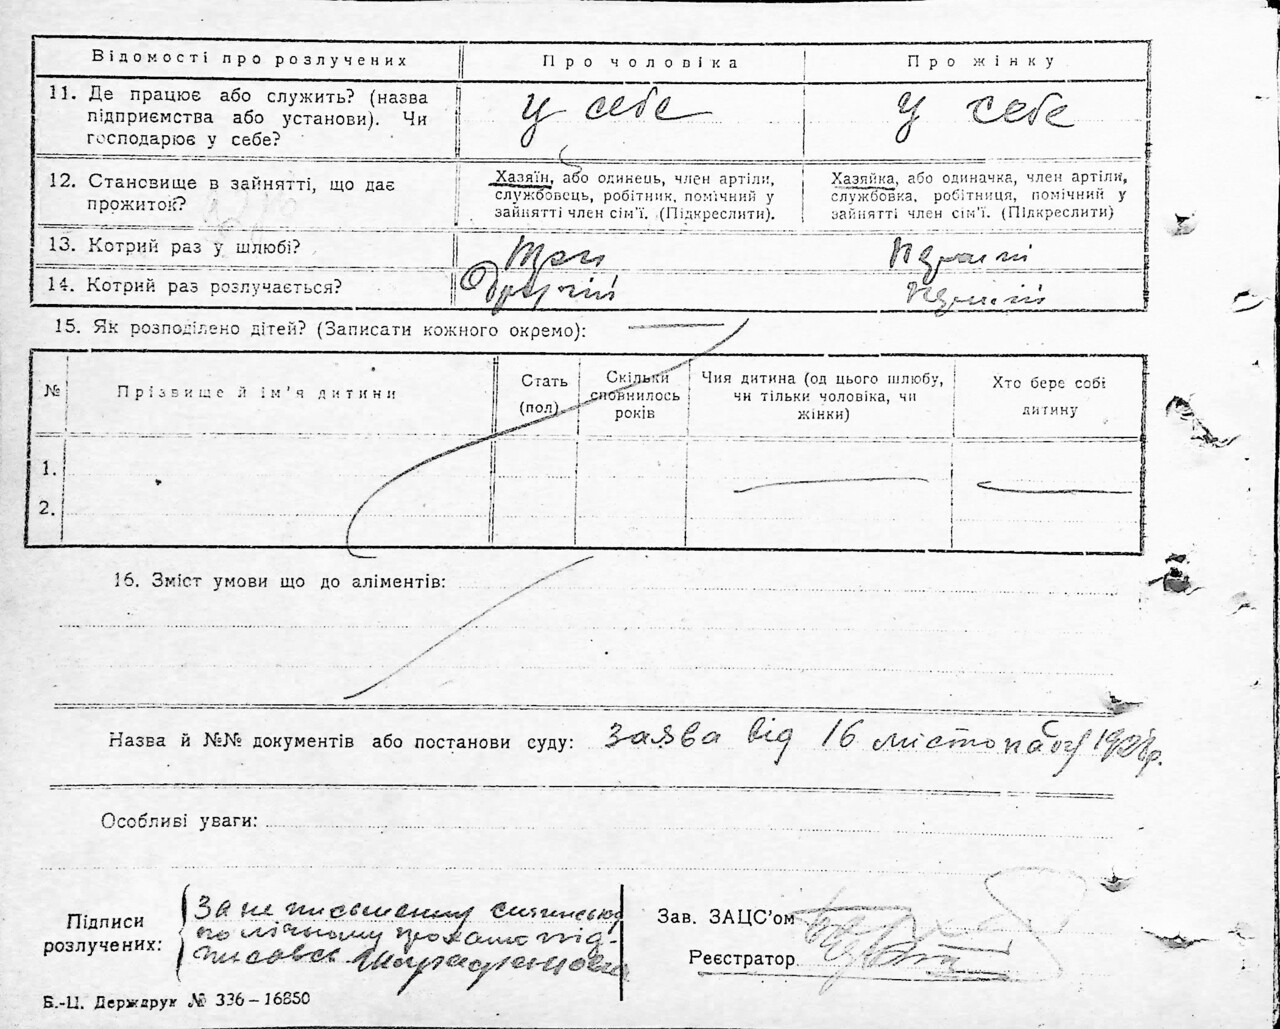 Відомості про розлучених
Про чоловіка
Про жінку
11. Де працює або служить? (назва
підприємства або установи). Чи
господарює у себе?
у себе
у себе
12. Становище в зайнятті, що дає
прожиток?
Хазяїн, або одинець, член артіли,
службовець, робітник, помічний у
зайнятті член сім'ї. (Підкреслити).
Хазяйка, або одиначка, член артіли,
службовка, робітниця, помічний у
зайнятті член сім'ї. (Підкреслити)
13. Котрий раз у шлюбі?
14. Котрий раз розлучається?
Другий
15. Як розподілено дітей? (Записати кожного окремо):
№
Прізвище й ім'я дитини
Стать
(пол)
Скільки
сповнилось
років
Чия дитина (од цього шлюбу,
чи тільки чоловіка, чи
жінки)
Хто бере собі
дитину
1.
2.
16. Зміст умови що до аліментів:
Назва й №№ документів або постанови суду: заява від 16 листопаду
Особливі уваги:
Підписи
розлучених:
За не письменну
по лічному під-
писався
Зав. ЗАЦС'ом
Реєстратор
Б.-Ц. Держдрук № 336-16850